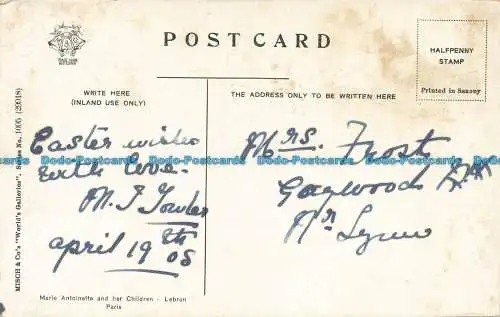 POST CARD
HALFPENNY
STAMP
Printed in Saxony
WRITE HERE
(INLAND USE ONLY)
THE ADDRESS ONLY TO BE WRITTEN HERE
MISCH & Co's "World's Galleries". Series No. 1006 (20018)
Easter wishes
with love.
M. J. Fowler
April 19th
08
Mrs. Frost
Gaywood
Nr Lynn
Dodo-Postcards Dodo-Postcards Dodo-Postcards Dodo-Postcards Dodo-Postcards
Marie Antoinette and her Children - Lebrun
Paris